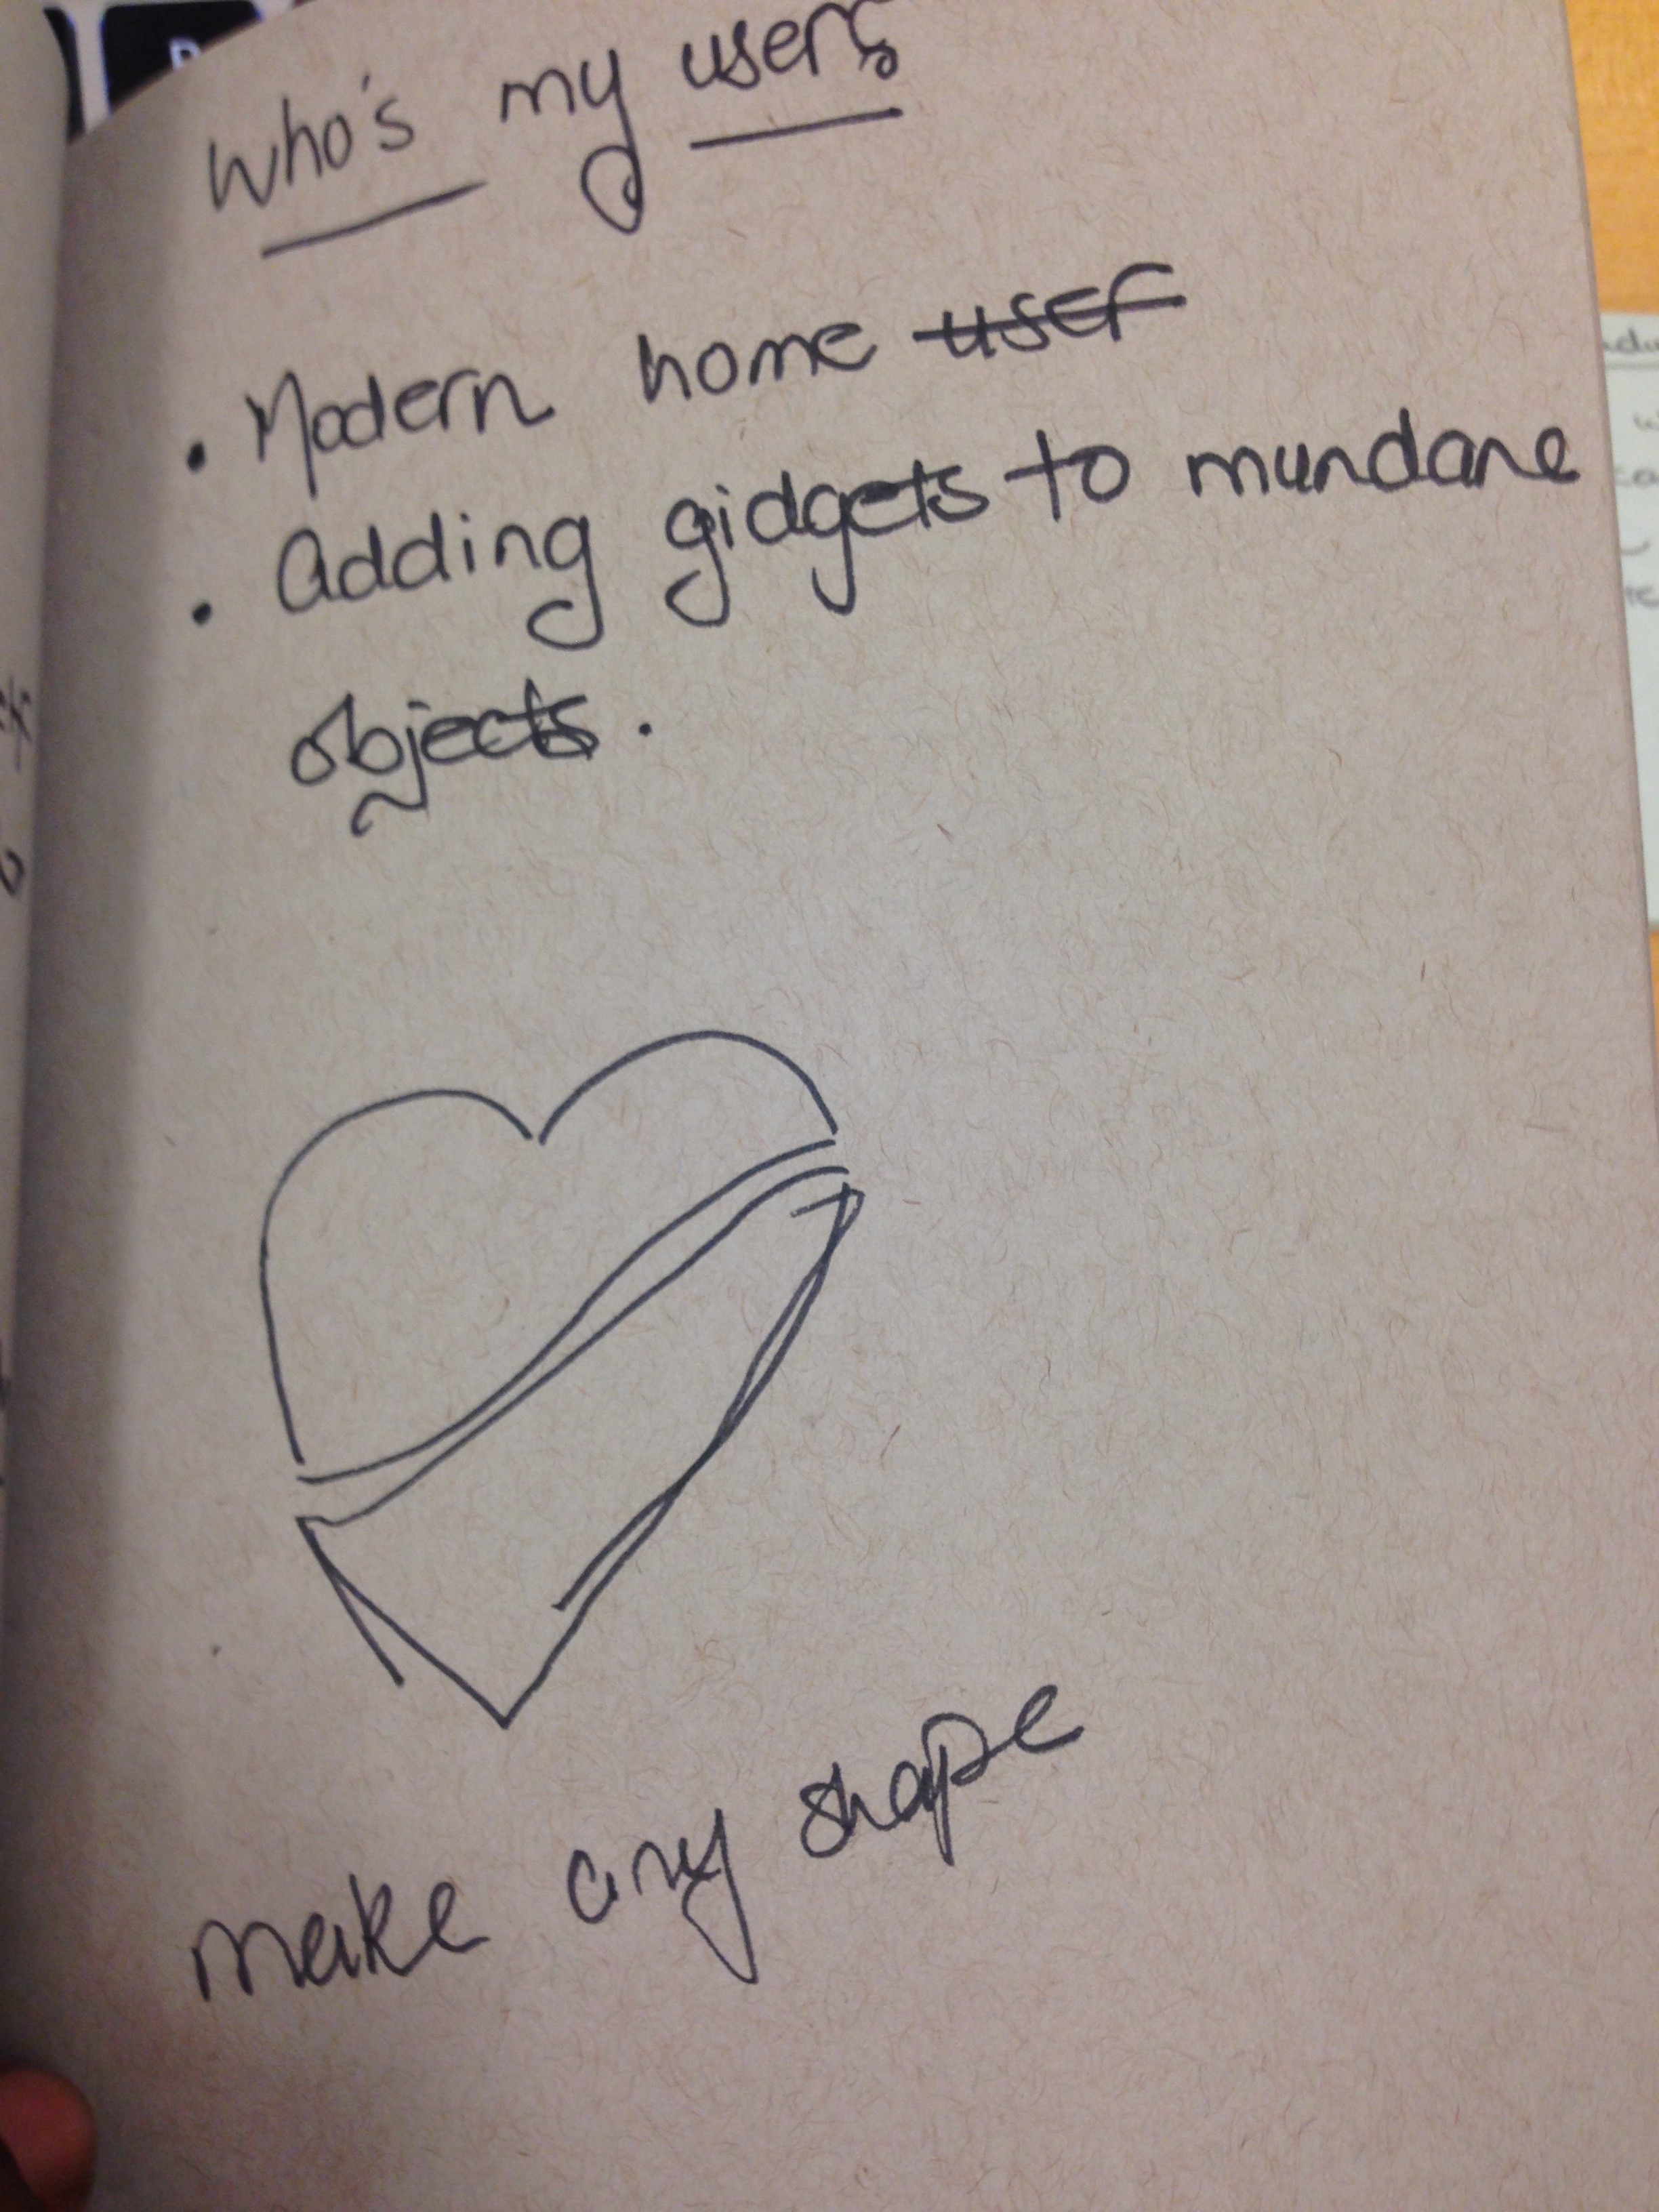 Who's my users
• Modern home user
• Adding gidgets to mundane
objects.
make any shape